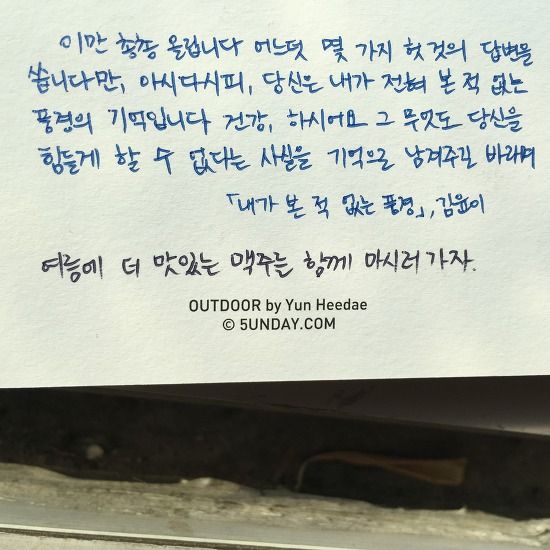 이만 총총 올립니다 어느덧 몇 가지 헛것의 답변을
씁니다만, 아시다시피, 당신은 내가 전혀 본 적 없는
풍경의 기억입니다 건강, 하시어요 그 무엇도 당신을
힘들게 할 수 없다는 사실을 기억으로 남겨주길 바라며
「내가 본 적 없는 풍경」, 김윤이
여름에 더 맛있는 맥주를 함께 마시러 가자.
OUTDOOR by Yun Heedae
© 5UNDAY.COM